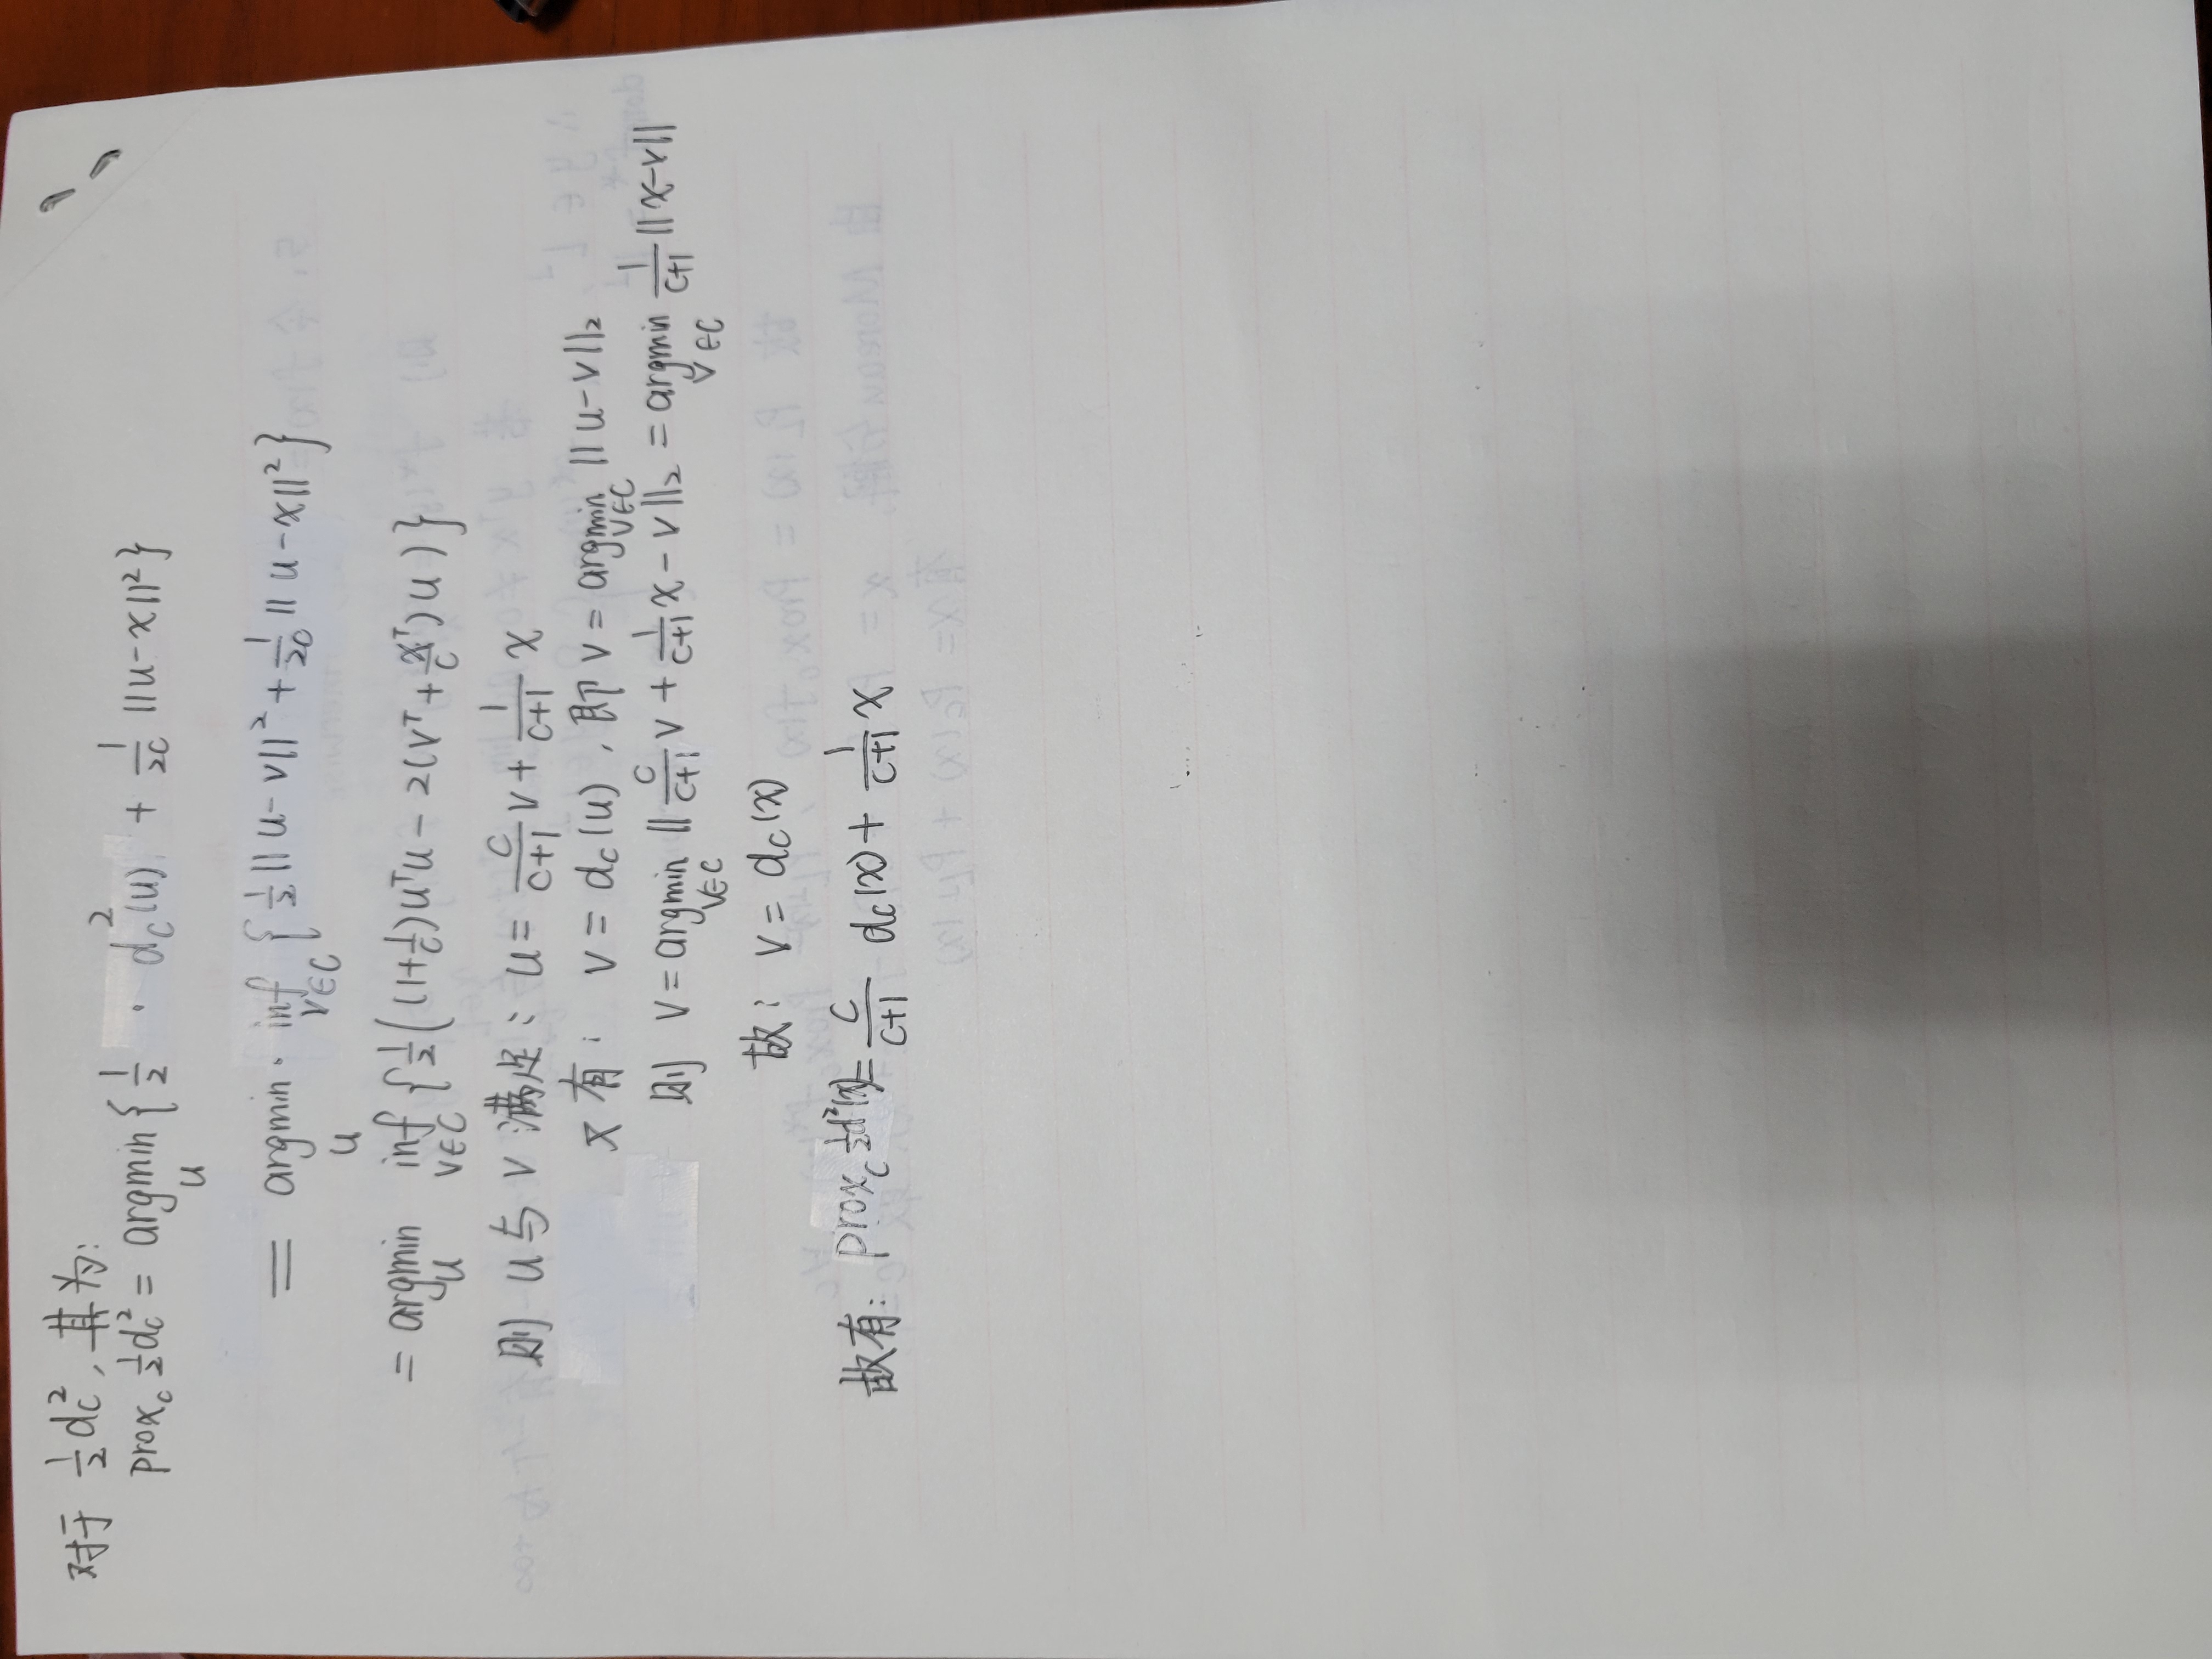 对于 ½d_C², 其为:
prox_c ½d_C² = argmin_u {½ · d_C²(u) + 1/2c ||u-x||²}
= argmin_u · inf_{v∈C} {½||u-v||² + 1/2c ||u-x||²}
= argmin_u inf_{v∈C} {½((1+1/c)uᵀu - 2(vᵀ+xᵀ/c)u)}
则 u与 v 满足: u = c/(c+1) v + 1/(c+1) x
又有: v = d_C(u), 即 v = argmin_{v∈C} ||u-v||₂
则 v = argmin_{v∈C} ||c/(c+1) v + 1/(c+1) x - v||₂ = argmin_{v∈C} 1/(c+1) ||x-v||
故: v = d_C(x)
故有: prox_c ½d²(x) = c/(c+1) d_C(x) + 1/(c+1) x